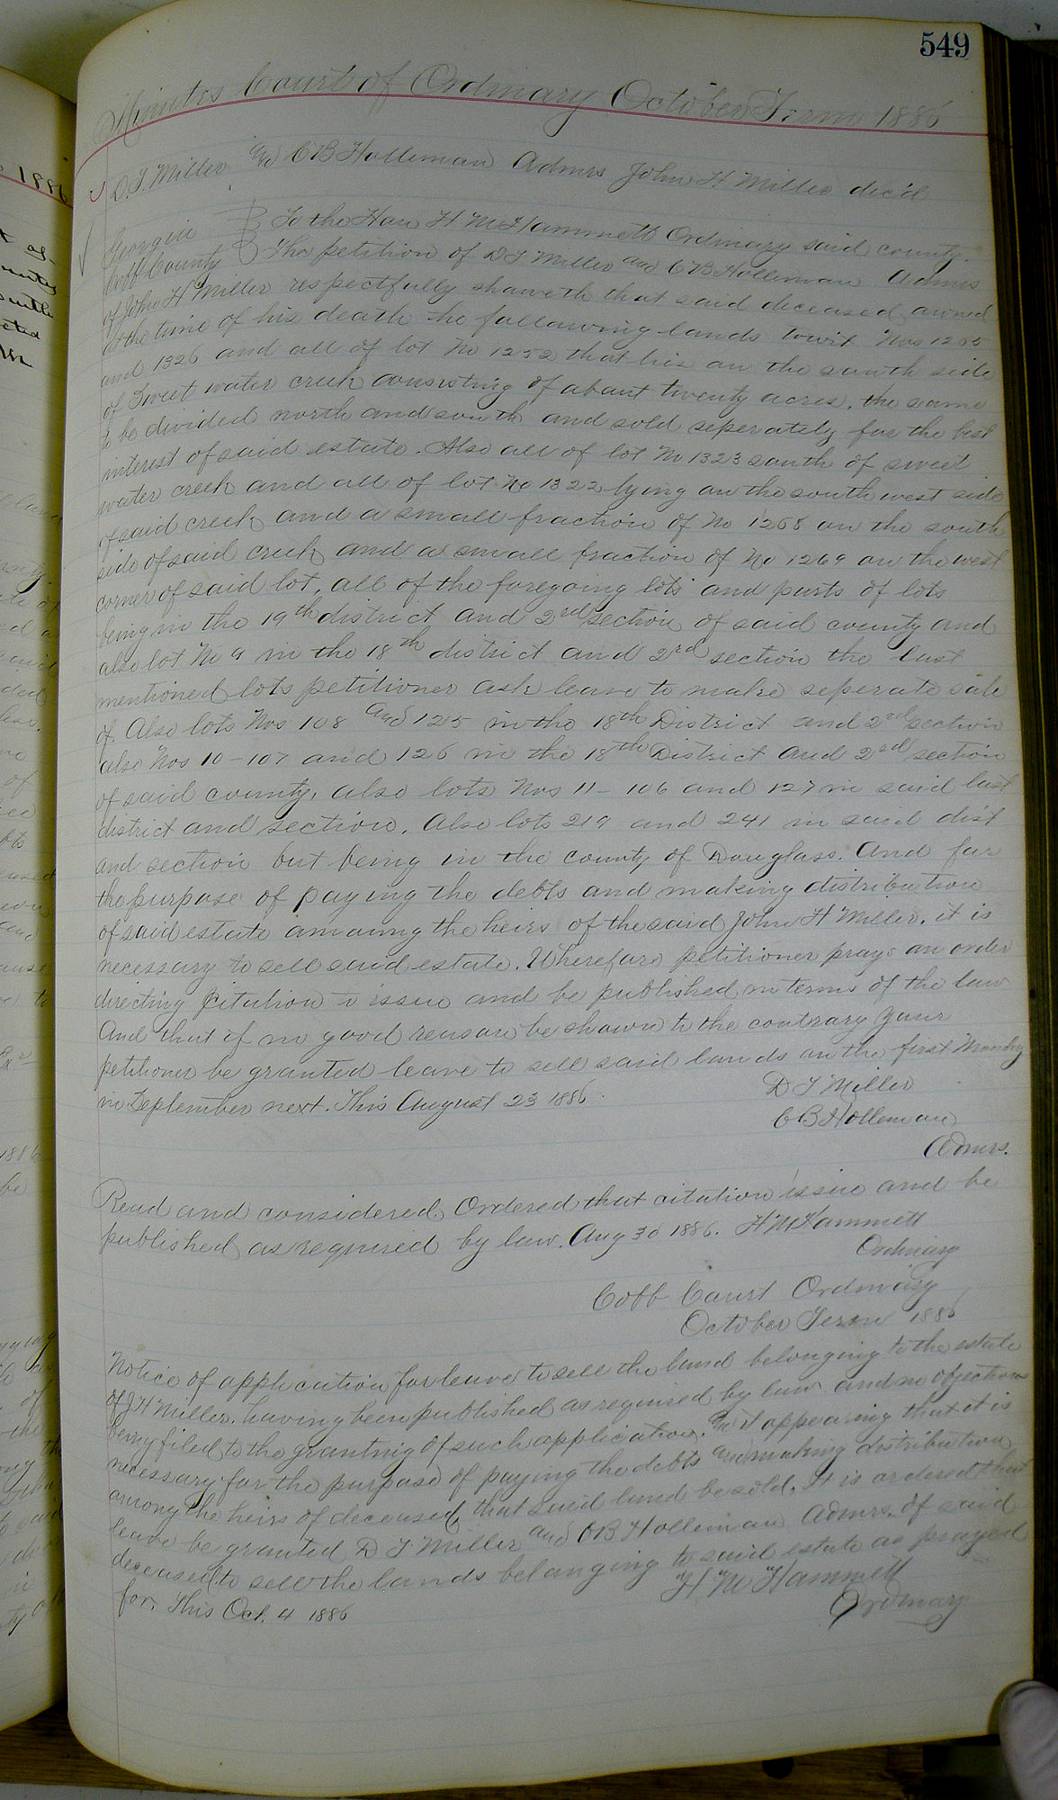 549
Minutes Court of Ordinary October Term 1886
D. T. Miller and C B Holleman Admrs John H Miller dec'd
Georgia } To the Hon H M Hammett Ordinary said county.
Cobb County } The petition of D T Miller and C B Holleman Admrs
of John H Miller respectfully showeth that said deceased owned
at the time of his death the following lands towit Nos 1255
and 1326 and all of lot No 1252 that lies on the south side
of Sweet water creek consisting of about twenty acres. the same
to be divided north and south and sold seperately for the best
interest of said estate. Also all of lot No 1323 south of sweet
water creek and all of lot No 1322 lying on the south west side
of said creek and a small fraction of No 1268 on the south
side of said creek and a small fraction of No 1269 on the west
corner of said lot, all of the foregoing lots and parts of lots
being in the 19th district and 2nd section of said county and
also lot No 9 in the 18th district and 2nd section the last
mentioned lots petitioner ask leave to make seperate sale
of Also lots Nos 108 and 125 in the 18th District and 2nd section
also Nos 10 - 107 and 126 in the 18th District and 2nd section
of said county, also lots Nos 11 - 106 and 127 in said last
district and section. Also lots 219 and 241 in said dist
and section but being in the county of Douglass. And for
the purpose of paying the debts and making distribution
of said estate amoung the heirs of the said John H Miller. it is
necessary to sell said estate. Wherefore petitioner prays an order
directing citation to issue and be published in terms of the law
And that if no good reason be shown to the contrary your
petitioner be granted leave to sell said lands on the first Monday
in September next. This August 23 1886.
D T Miller
C B Holleman
Admrs.
Read and considered. Ordered that citation issue and be
published as required by law. Aug 30 1886. H M Hammett
Ordinary
Cobb Court Ordinary
October Term 1886
Notice of application for leave to sell the land belonging to the estate
of J H Miller. having been published as required by law and no objections
being filed to the granting of such application. and it appearing that it is
necessary for the purpose of paying the debts and making distribution
among the heirs of deceased, that said land be sold. It is ordered that
leave be granted D T Miller and C B Holleman Admrs. of said
deceased to sell the lands belonging to said estate as prayed
for. This Oct. 4 1886
H M Hammett
Ordinary